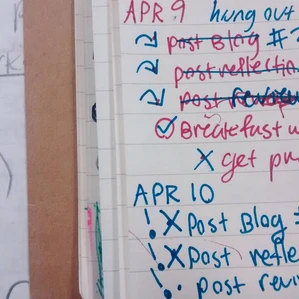 APR 9 hang out
post Blog #
post reflectin
post review
Breakfast w
X get pr
APR 10
! X Post Blog
! X Post refle
! post revi